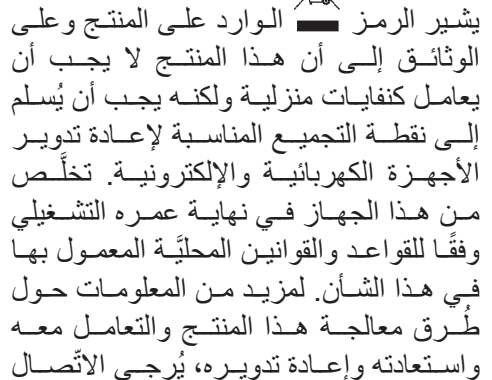 يشير الرمز الوارد على المنتج وعلى
الوثائق إلى أن هذا المنتج لا يجب أن
يعامل كنفايات منزلية ولكنه يجب أن يُسلم
إلى نقطة التجميع المناسبة لإعادة تدوير
الأجهزة الكهربائية والإلكترونية. تخلَّص
من هذا الجهاز في نهاية عمره التشغيلي
وفقًا للقواعد والقوانين المحليَّة المعمول بها
في هذا الشأن. لمزيد من المعلومات حول
طُرق معالجة هذا المنتج والتعامل معه
واستعادته وإعادة تدويره، يُرجى الاتّصال